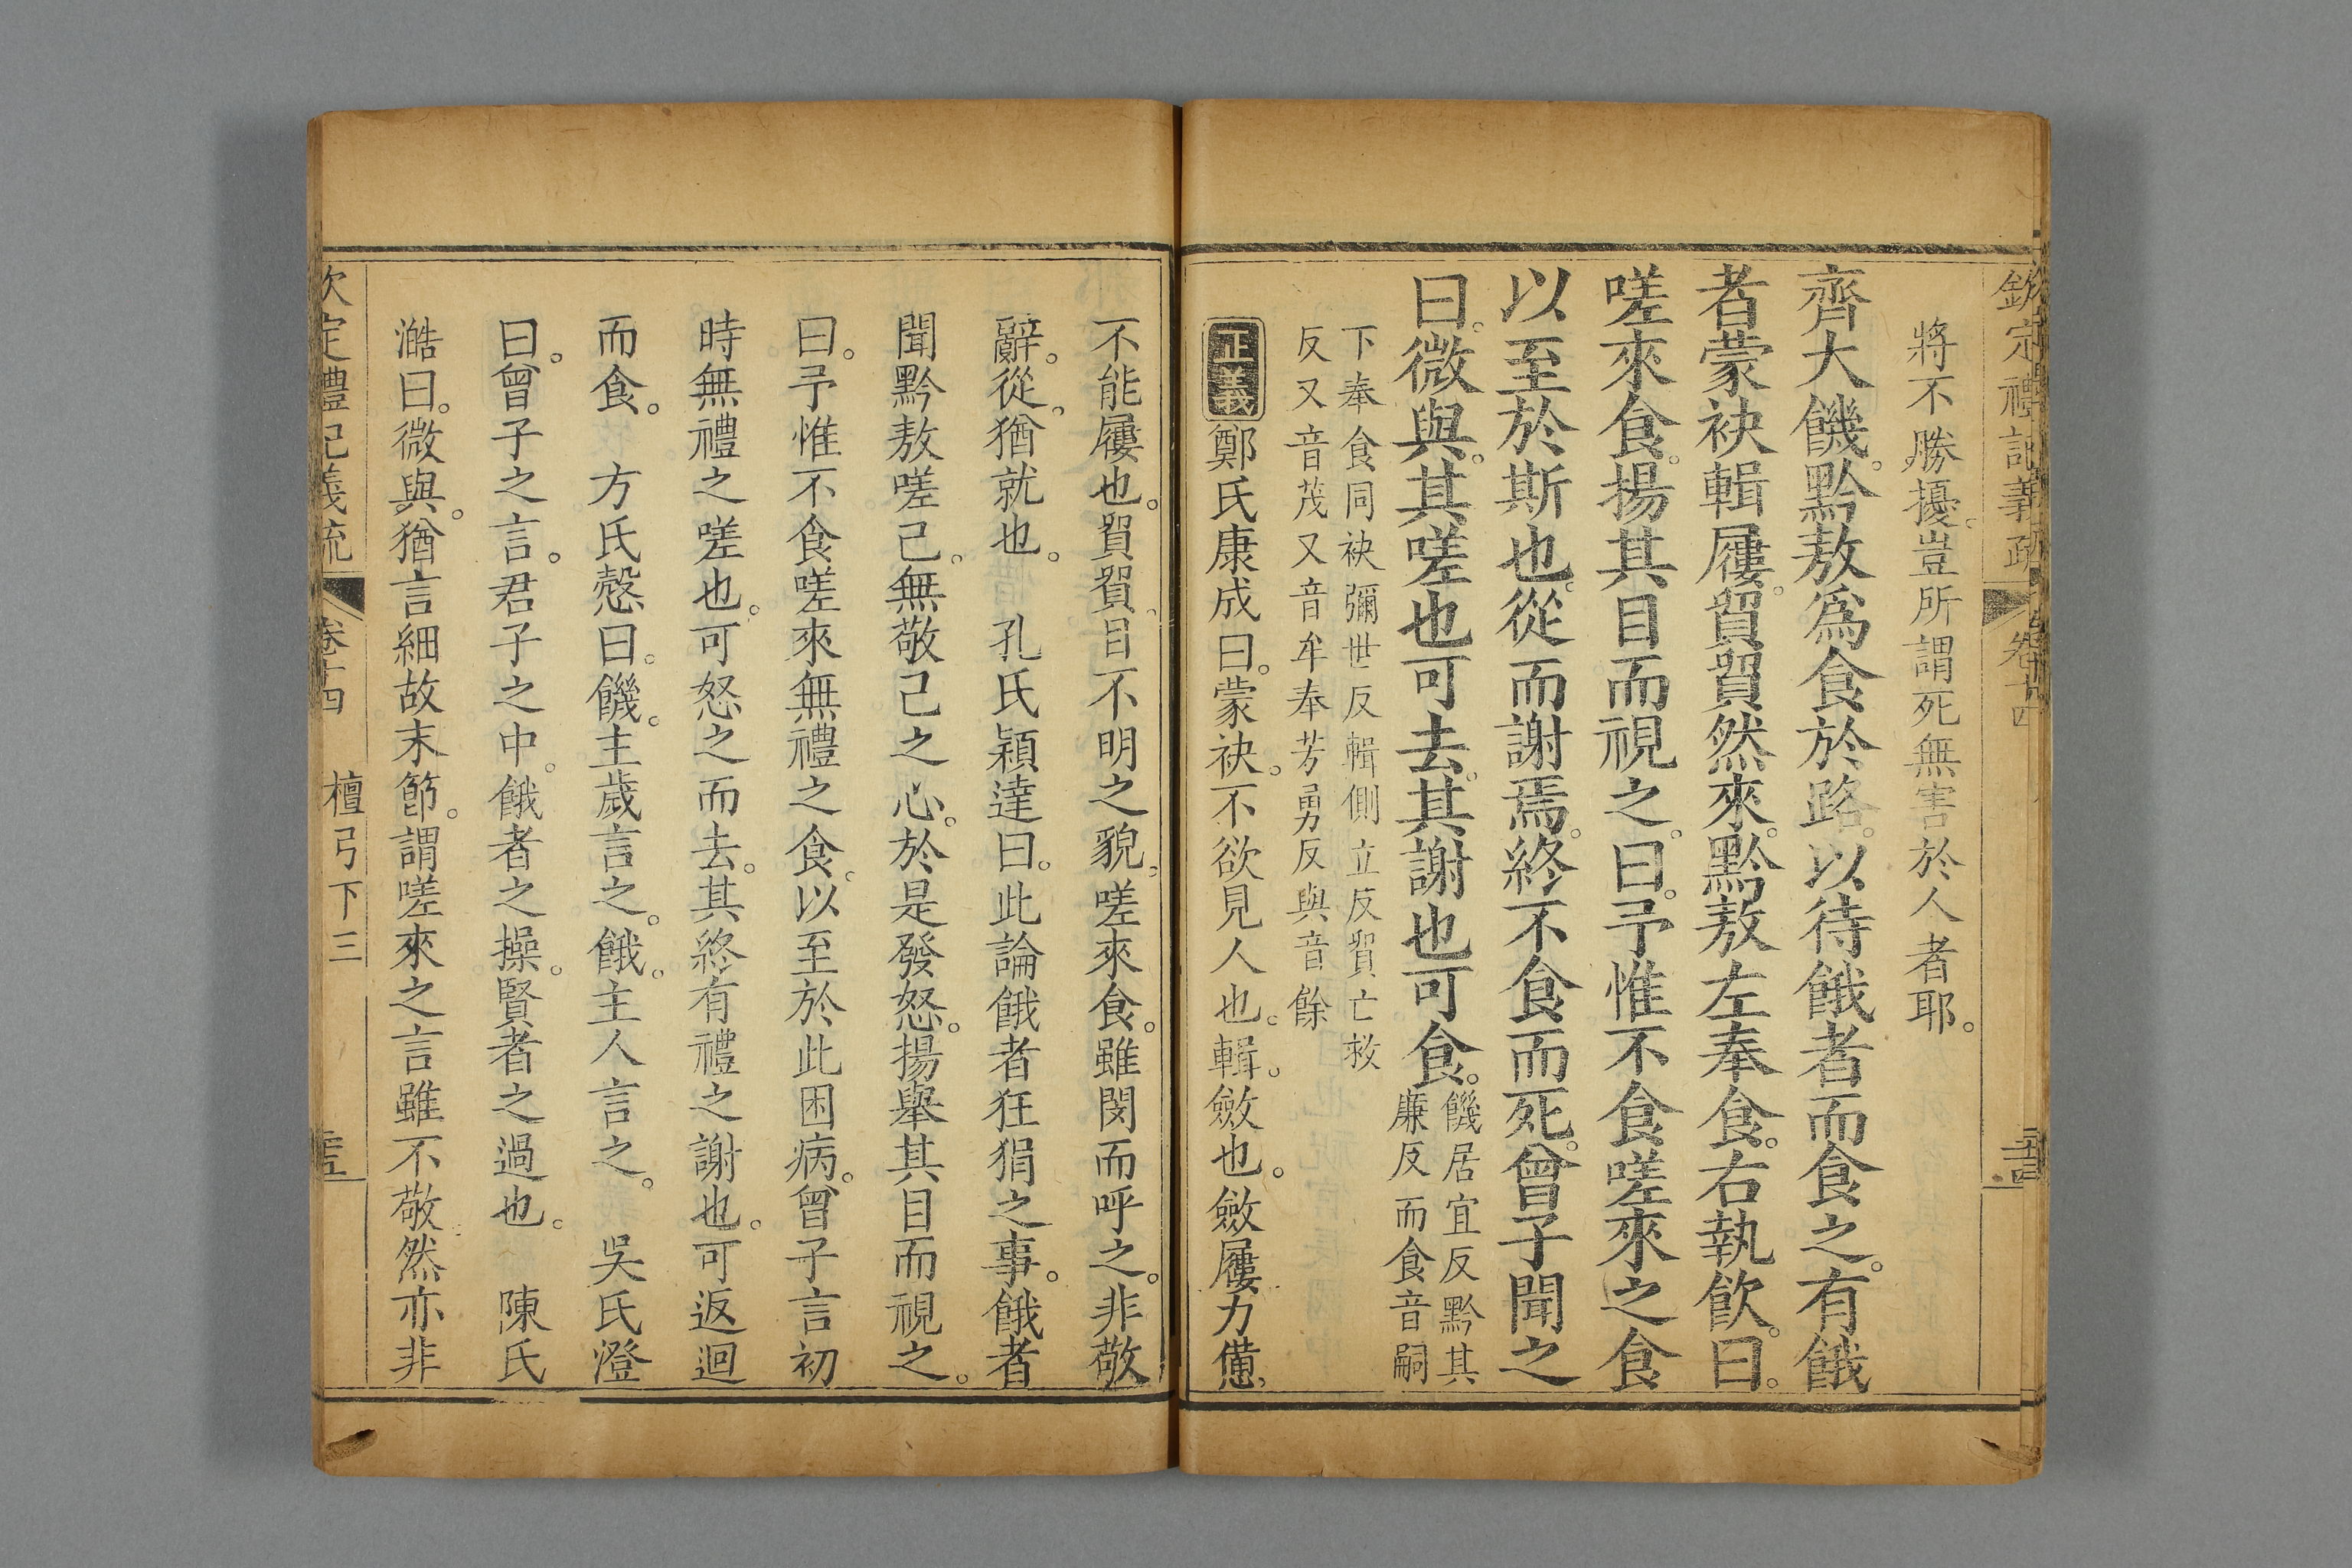 欽定禮記義疏 卷十四
將不勝擾。豈所謂死無害於人者耶。
齊大饑。黔敖爲食於路。以待餓者而食之。有餓
者蒙袂輯屨。貿貿然來。黔敖左奉食。右執飲。曰。
嗟來食。揚其目而視之。曰。予惟不食嗟來之食
以至於斯也。從而謝焉。終不食而死。曾子聞之
曰。微與。其嗟也可去。其謝也可食。
饑居宜反黔其
廉反而食音嗣
下奉食同袂彌世反輯側立反貿亡救
反又音茂又音牟奉芳勇反與音餘
正義鄭氏康成曰。蒙袂。不欲見人也。輯。斂也。斂屨力憊。
不能屨也。貿貿。目不明之貌。嗟來食。雖閔而呼之。非敬
辭。從。猶就也。 孔氏穎達曰。此論餓者狂狷之事。餓者
聞黔敖嗟己。無敬己之心。於是發怒。揚舉其目而視之。
曰。予惟不食嗟來無禮之食。以至於此困病。曾子言初
時無禮之嗟也。可怒之而去。其終有禮之謝也。可返迴
而食。 方氏慤曰。饑。主歲言之。餓。主人言之。 吳氏澄
曰。曾子之言。君子之中。餓者之操。賢者之過也。 陳氏
澔曰。微與。猶言細故末節。謂嗟來之言雖不敬然亦非
欽定禮記義疏 卷十四 檀弓下三